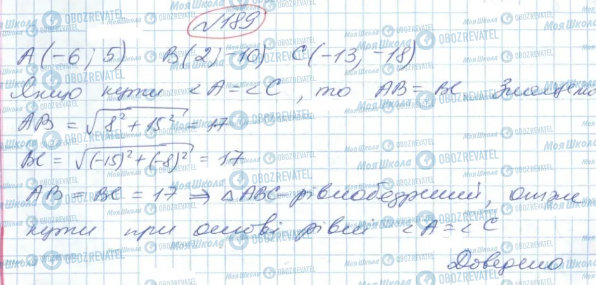 №189
A(-6; 5) B(2; -10) C(-13; -18)
Якщо кути ∠A=∠C, то AB=BC Знайдемо
AB = √8²+15² = 17
BC = √(-15)²+(-8)² = 17
AB = BC = 17 ⇒ △ABC-рівнобедрений, отже
кути при основі рівні ∠A=∠C
Доведено